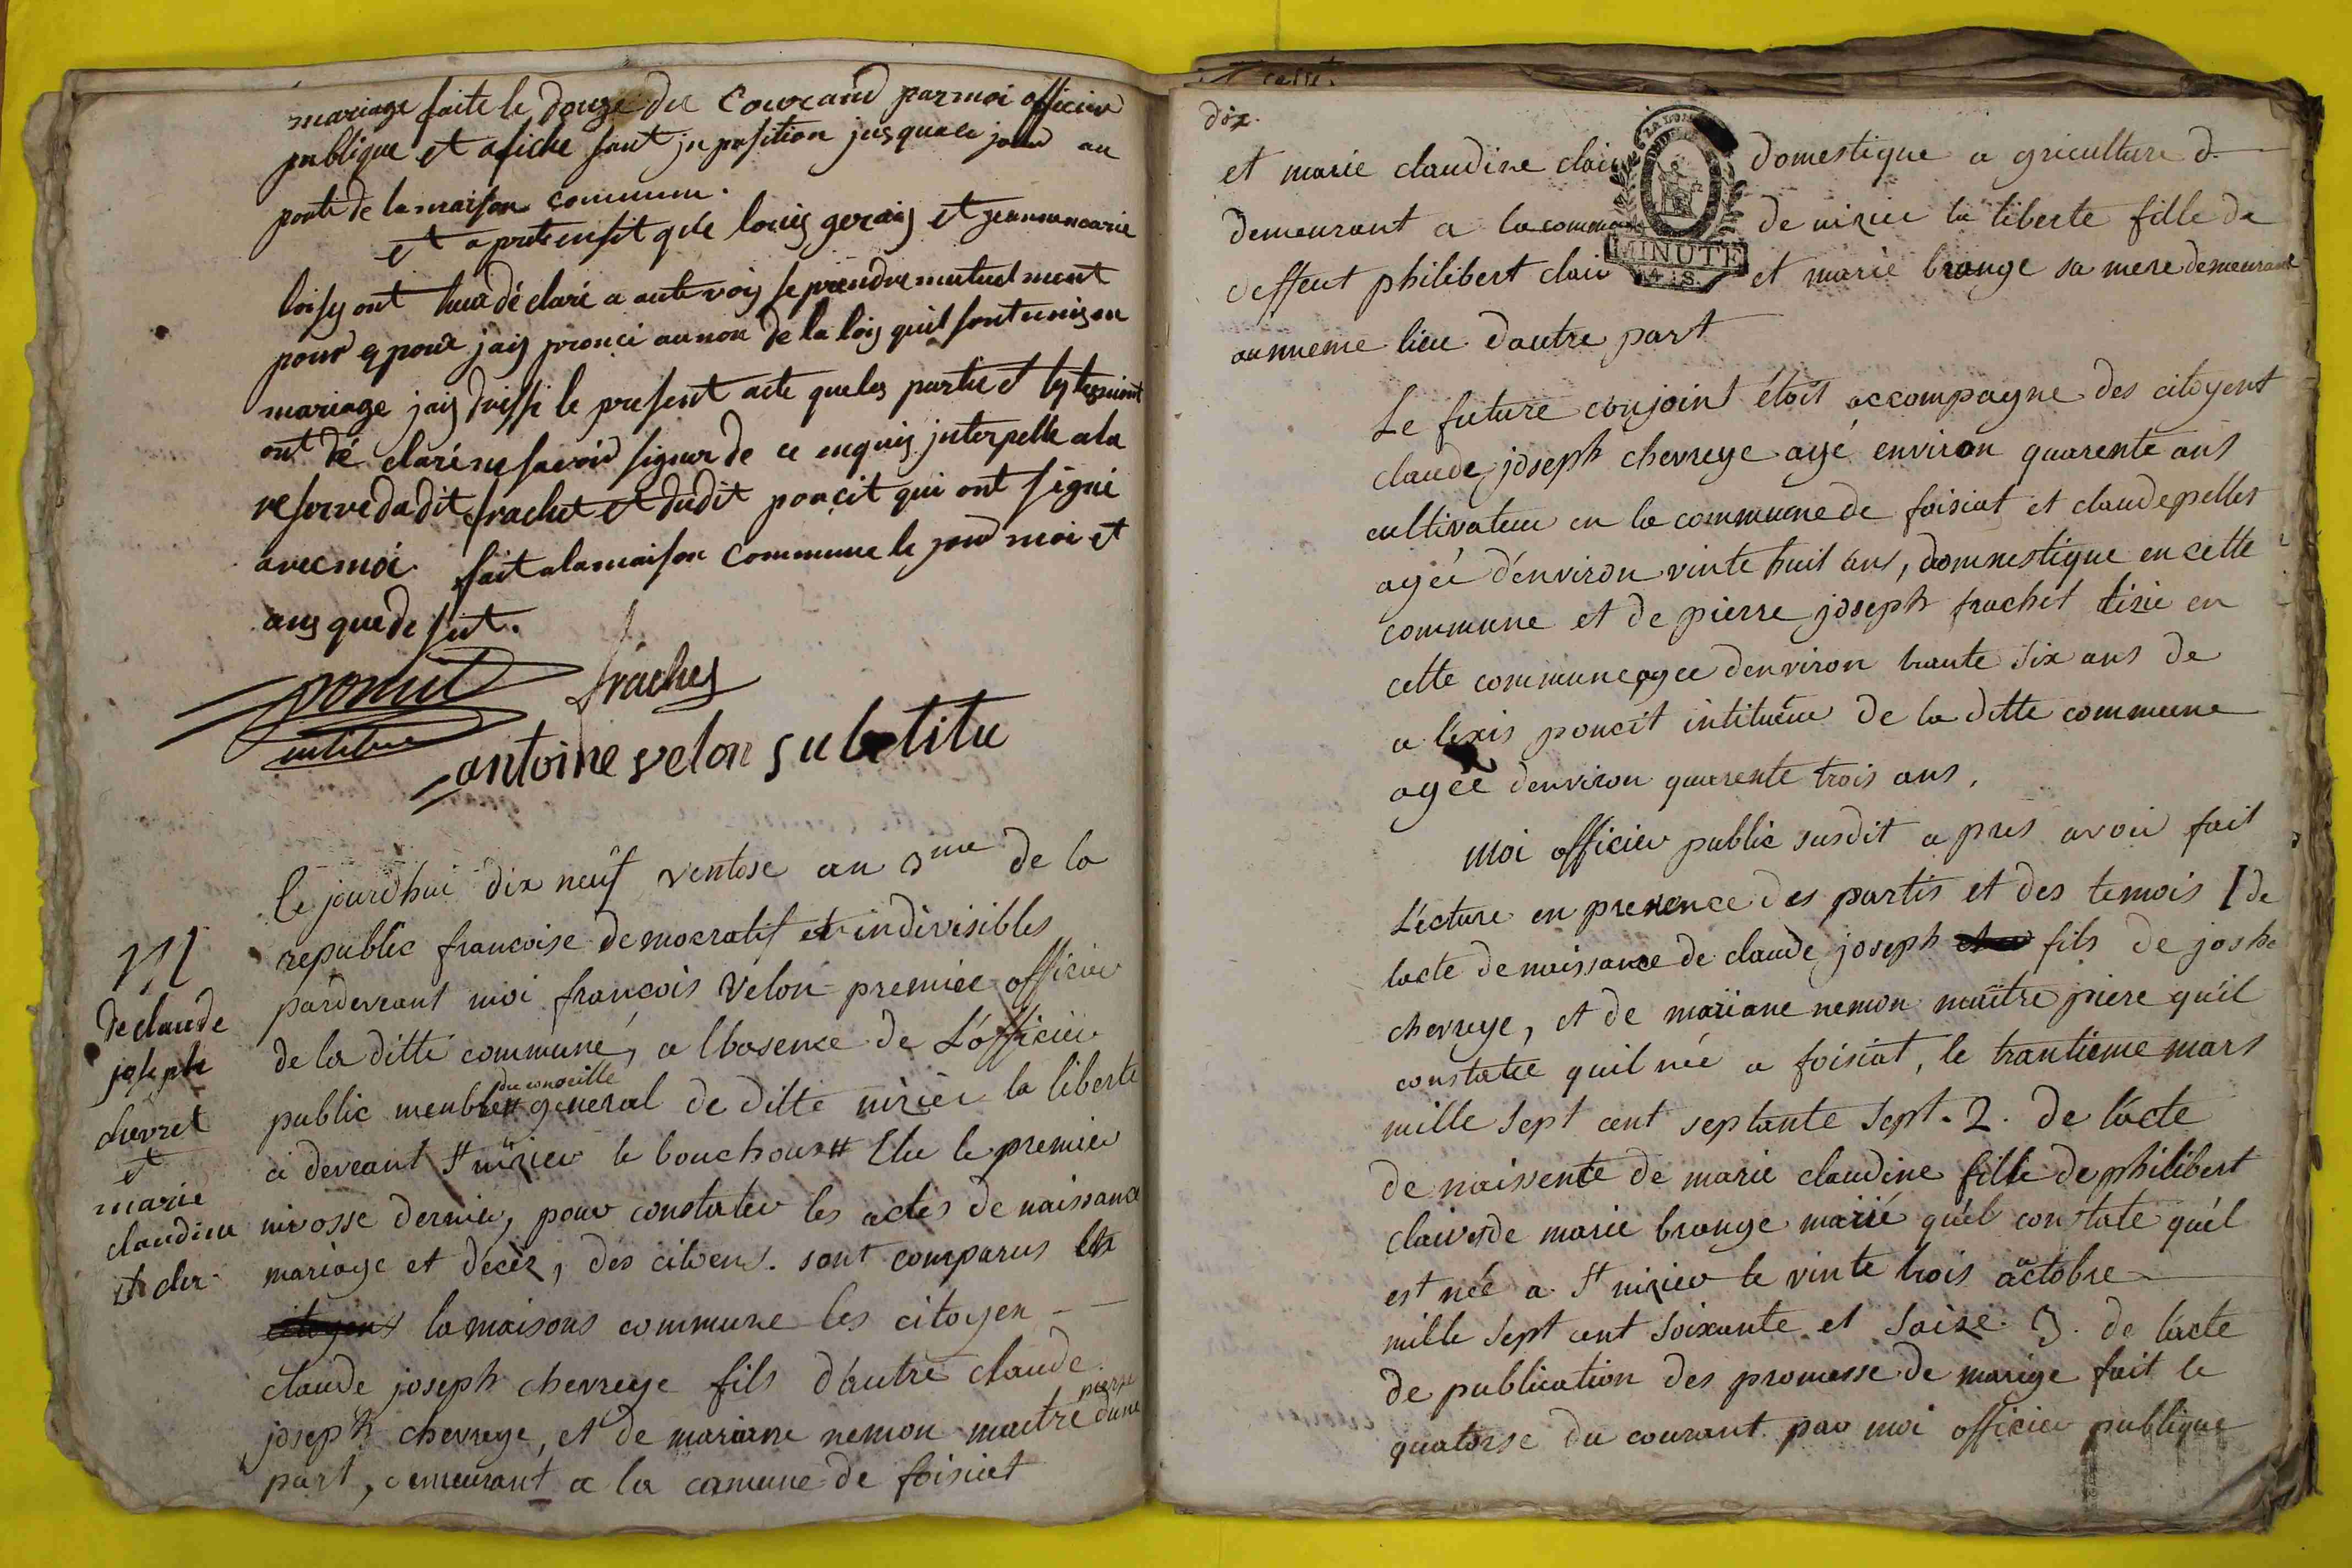 mariage faite le douze du Courand par moi officier
publique et afiche saut jnposition jusqua ce jour au
porte de la maison commune.
et apret ensit que louis gerais et jeanne marie
loisy ont heur déclaré a aute voix se prendre mutuel ment
pour epoux jaiy pronci au non de la loiy quil sont uniy en
mariage jaiy drissé le present acte queles partie et ly temint
ont dé claré ne savoir signer de ce enquis jnterpelle a la
reserve dudit frachet et dudit poncit qui ont signé
avec moi fait a la maison Commune le jour moi et
ans que de sut.
poncit frachet
intitueur
antoine velon substitu
Ce jourd'hui dix neuf ventose an 3me de la
republic francoise democratif et indivisibles
pardeveant moi francois Velon premier officier
de la ditte commune, a lbasence de L'officier
du conceille
public menbre # general de ditte nizier la liberte
ci deveant st nizier le bouchoux # Elu le premier
nivosse dernier, pour constater les actes de naissance
mariage et décèz, des citoens. sont comparus les
citoyens la maisons commune les citoyen
claude joseph chevreye fils d'autre claude
joseph chevreye, et de mariane nemon maitre pierre dune
part, demeurant a la comune de foisiat
M
de claude
joseph
chevret
et
marie
claudine
cler
dix.
et marie claudine clair domestique a griculture d.
demeurant a la commune de nizier la liberte fille de
deffent philibert clair et marie brange sa mere demeurant
au mueme lieu d'autre part
MINUTE
4 : S.
Le future conjoint étoit accompagne des citoyent
claude joseph chevreye agé environ quarente ans
cultivateur en la commune de foisiat et claude pelles
agéé d'environ vinte huit ans, domnestique en cette
commune et de pierre joseph frachet tisie en
cette commune agee denviron trante six ans de
a lexis poncit intitueur de la ditte commune
agéé denviron quarente trois ans,
Moi officier public susdit a pres avoir fait
Lecture en presence des partis et des temois 1 de
lacte de naissance de claude joseph fils de joshe
chevreye, et de mariane nemon maître piere qu'il
constatee quil née a foisiat, le trantieme mars
mille sept cent septante sept. 2. de lacte
de naissente de marie claudine fille de philibert
clair et de marie brange marié qu'el constate qu'el
est née a st nizier le vinte trois octobre
mille sept cent soixante et saize. 3. de lacte
de publication des promesse de marige fait le
quatorse du courant par moi officier publique